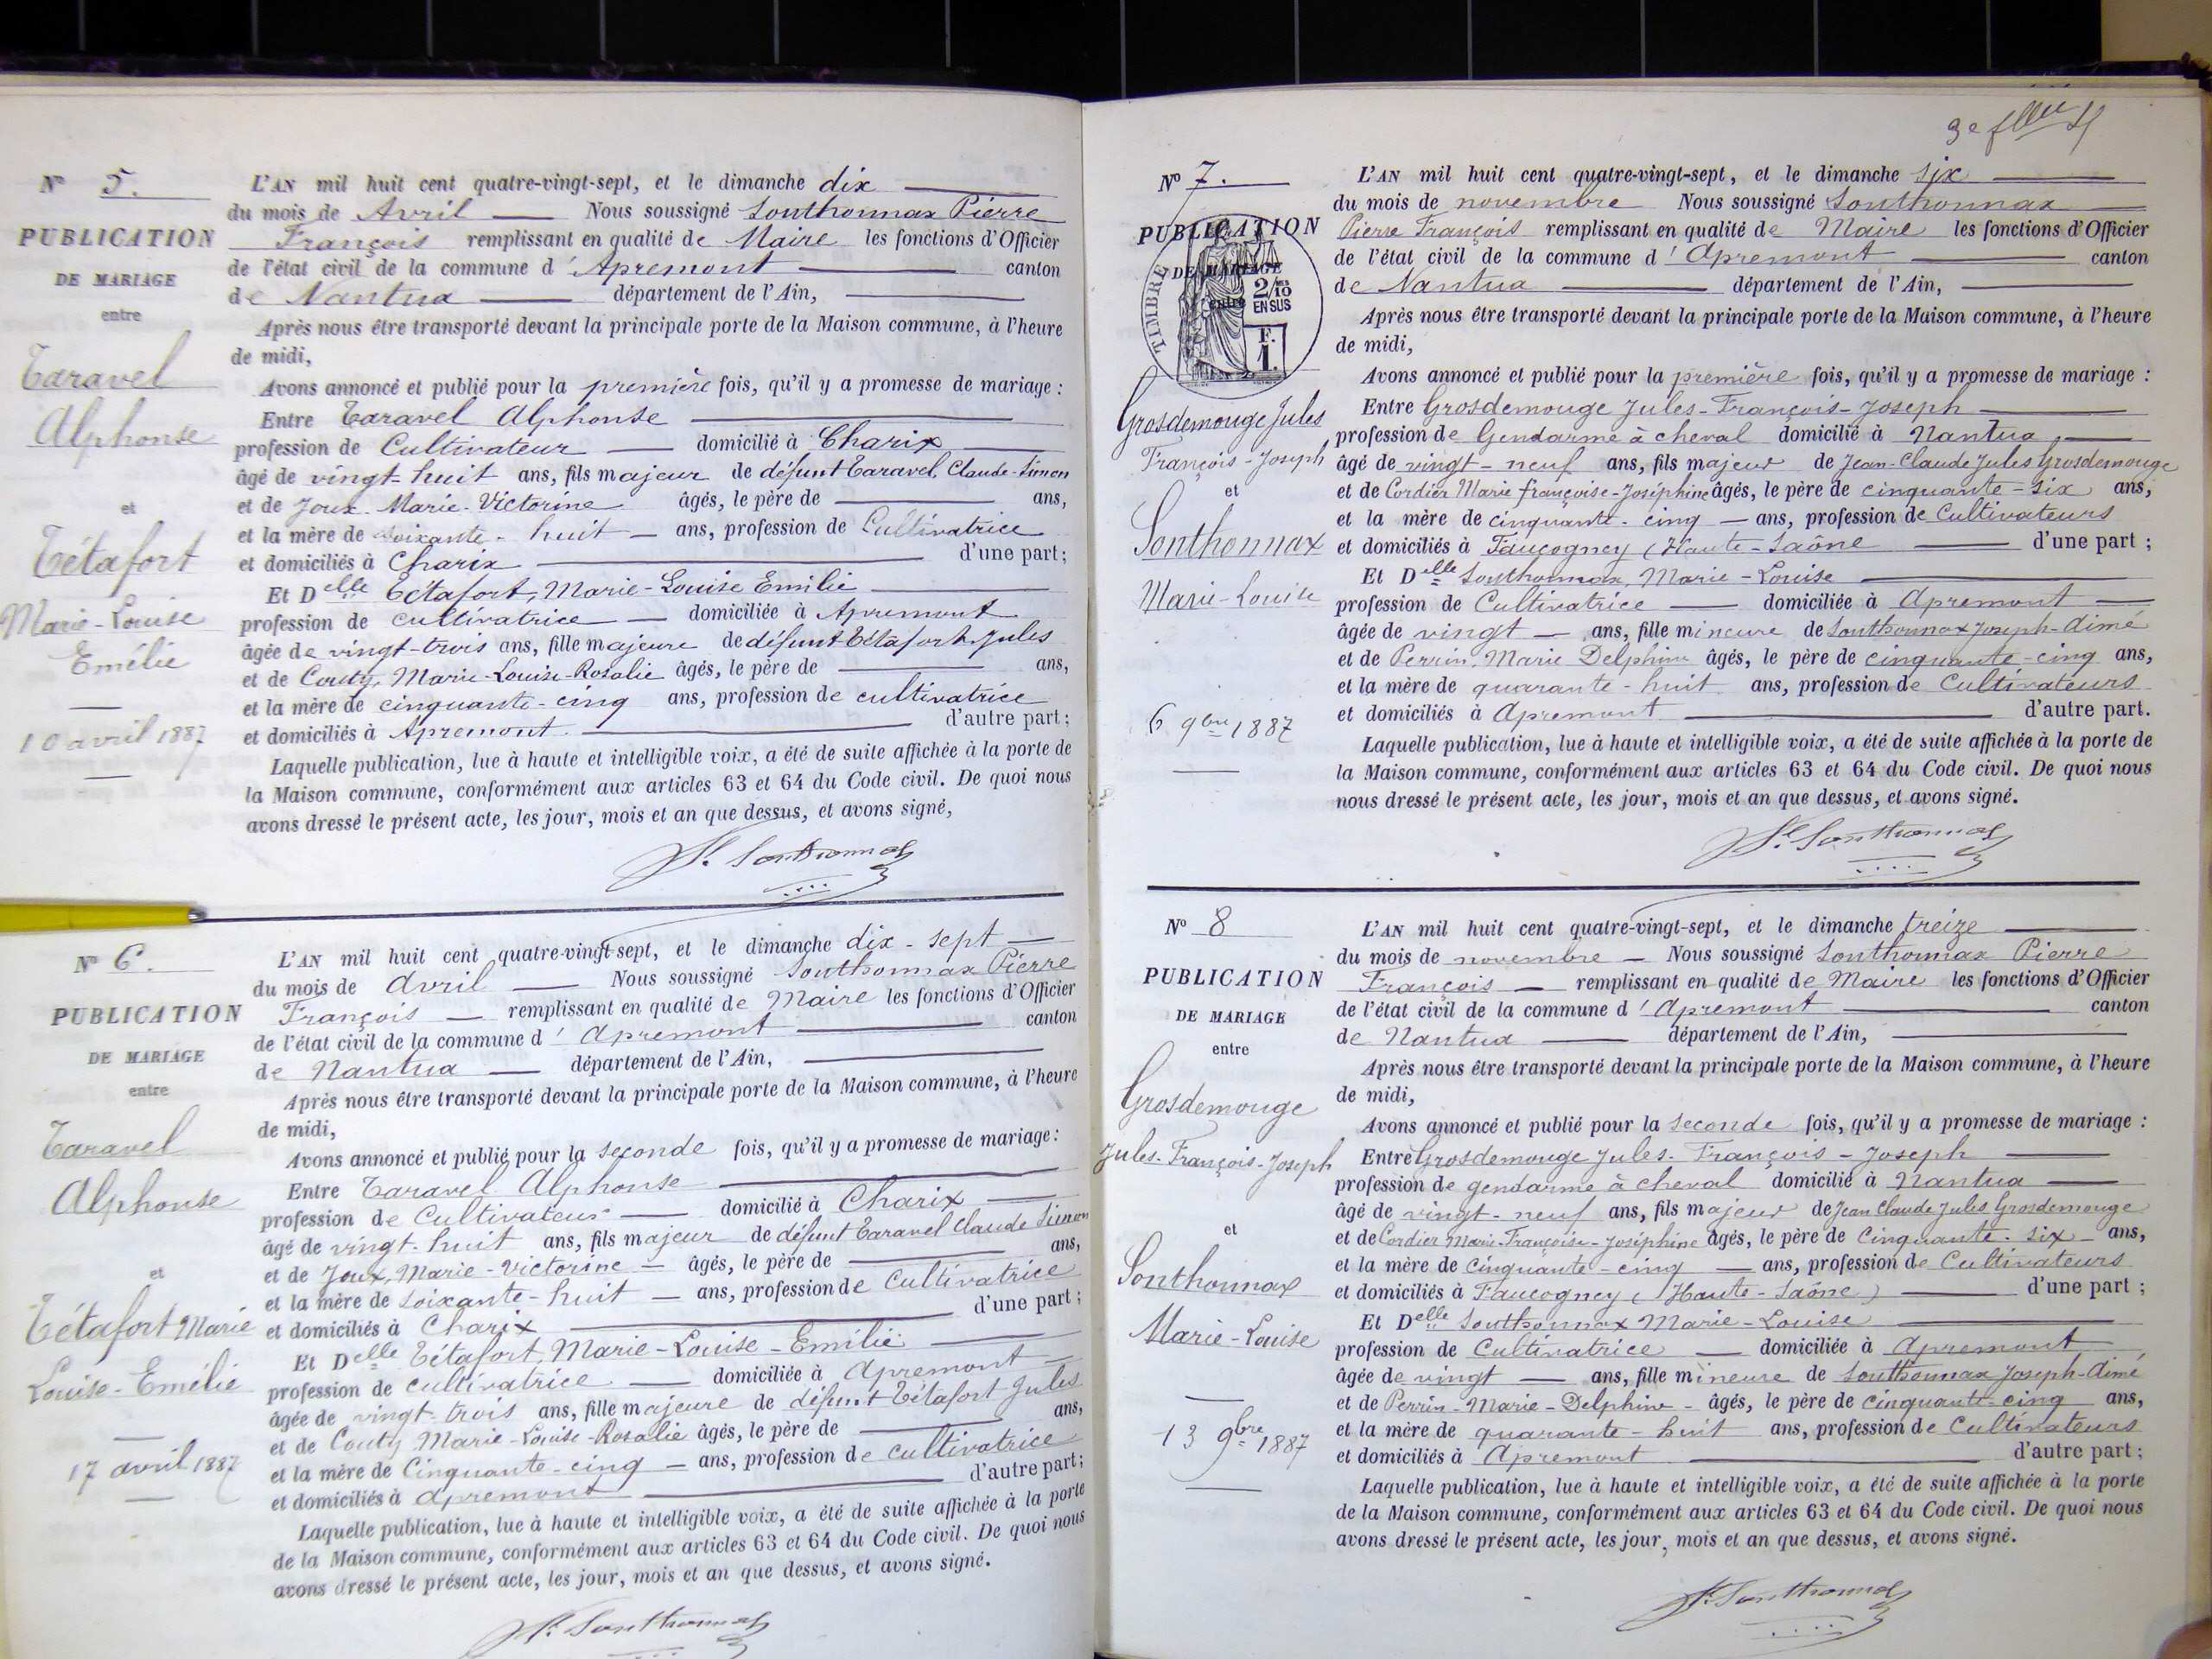 N° 5.
PUBLICATION
DE MARIAGE
entre
Taravel
Alphonse
et
Tétafort
Marie-Louise
Emélie
10 avril 1887
L'AN mil huit cent quatre-vingt-sept, et le dimanche dix
du mois de Avril Nous soussigné Sonthonnax Pierre
François remplissant en qualité de Maire les fonctions d'Officier
de l'état civil de la commune d'Apremont canton
de Nantua département de l'Ain,
Après nous être transporté devant la principale porte de la Maison commune, à l'heure
de midi,
Avons annoncé et publié pour la première fois, qu'il y a promesse de mariage :
Entre Taravel Alphonse
profession de Cultivateur domicilié à Charix
âgé de vingt-huit ans, fils majeur de défunt Taravel, Claude-Simon
et de Joux-Marie-Victorine âgés, le père de ans,
et la mère de soixante-huit ans, profession de Cultivatrice
et domiciliés à Charix d'une part ;
Et Delle Tétafort, Marie-Louise Emilie
profession de cultivatrice domiciliée à Apremont
âgée de vingt-trois ans, fille majeure de défunt Tétafort Jules
et de Couty, Marie-Louise-Rosalie âgés, le père de ans,
et la mère de cinquante-cinq ans, profession de cultivatrice
et domiciliés à Apremont d'autre part ;
Laquelle publication, lue à haute et intelligible voix, a été de suite affichée à la porte de
la Maison commune, conformément aux articles 63 et 64 du Code civil. De quoi nous
avons dressé le présent acte, les jour, mois et an que dessus, et avons signé,
Sonthonnax
N° 6.
PUBLICATION
DE MARIAGE
entre
Taravel
Alphonse
et
Tétafort Marie
Louise-Emélie
17 avril 1887
L'AN mil huit cent quatre-vingt-sept, et le dimanche dix-sept
du mois de Avril Nous soussigné Sonthonnax Pierre
François remplissant en qualité de Maire les fonctions d'Officier
de l'état civil de la commune d'Apremont canton
de Nantua département de l'Ain,
Après nous être transporté devant la principale porte de la Maison commune, à l'heure
de midi,
Avons annoncé et publié pour la seconde fois, qu'il y a promesse de mariage :
Entre Taravel Alphonse
profession de Cultivateur domicilié à Charix
âgé de vingt-huit ans, fils majeur de défunt Taravel Claude Simon
et de Joux, Marie-Victorine âgés, le père de ans,
et la mère de soixante-huit ans, profession de Cultivatrice
et domiciliés à Charix d'une part ;
Et Delle Tétafort, Marie-Louise-Emilie
profession de cultivatrice domiciliée à Apremont
âgée de vingt-trois ans, fille majeure de défunt Tétafort Jules
et de Couty Marie-Louise-Rosalie âgés, le père de ans,
et la mère de Cinquante-cinq ans, profession de cultivatrice
et domiciliés à Apremont d'autre part ;
Laquelle publication, lue à haute et intelligible voix, a été de suite affichée à la porte
de la Maison commune, conformément aux articles 63 et 64 du Code civil. De quoi nous
avons dressé le présent acte, les jour, mois et an que dessus, et avons signé.
Sonthonnax
3e
N° 7.
PUBLICATION
DE MARIAGE
entre
TIMBRE
2/10
EN SUS
F.
1.
Grosdemouge Jules
François-Joseph
et
Sonthonnax
Marie-Louise
6 9bre 1887
L'AN mil huit cent quatre-vingt-sept, et le dimanche six
du mois de novembre Nous soussigné Sonthonnax
Pierre François remplissant en qualité de Maire les fonctions d'Officier
de l'état civil de la commune d'Apremont canton
de Nantua département de l'Ain,
Après nous être transporté devant la principale porte de la Maison commune, à l'heure
de midi,
Avons annoncé et publié pour la première fois, qu'il y a promesse de mariage :
Entre Grosdemouge Jules-François-Joseph
profession de Gendarme à cheval domicilié à Nantua
âgé de vingt-neuf ans, fils majeur de Jean-Claude Jules Grosdemouge
et de Cordier Marie françoise-Joséphine âgés, le père de cinquante-six ans,
et la mère de cinquante-cinq ans, profession de Cultivateurs
et domiciliés à Faucogney (Haute-Saône d'une part ;
Et Delle Sonthonnax, Marie-Louise
profession de Cultivatrice domiciliée à Apremont
âgée de vingt ans, fille mineure de Sonthonnax Joseph-Aimé
et de Perrin, Marie Delphine âgés, le père de cinquante-cinq ans,
et la mère de quarante-huit ans, profession de Cultivateurs
et domiciliés à Apremont d'autre part.
Laquelle publication, lue à haute et intelligible voix, a été de suite affichée à la porte de
la Maison commune, conformément aux articles 63 et 64 du Code civil. De quoi nous
nous dressé le présent acte, les jour, mois et an que dessus, et avons signé.
Sonthonnax
N° 8
PUBLICATION
DE MARIAGE
entre
Grosdemouge
Jules-François-Joseph
et
Sonthonnax
Marie-Louise
13 9bre 1887
L'AN mil huit cent quatre-vingt-sept, et le dimanche treize
du mois de novembre Nous soussigné Sonthonnax Pierre
François remplissant en qualité de Maire les fonctions d'Officier
de l'état civil de la commune d'Apremont canton
de Nantua département de l'Ain,
Après nous être transporté devant la principale porte de la Maison commune, à l'heure
de midi,
Avons annoncé et publié pour la seconde fois, qu'il y a promesse de mariage :
Entre Grosdemouge Jules-François-Joseph
profession de gendarme à cheval domicilié à Nantua
âgé de vingt-neuf ans, fils majeur de Jean Claude Jules Grosdemouge
et de Cordier Marie-Françoise-Joséphine âgés, le père de Cinquante-six ans,
et la mère de cinquante-cinq ans, profession de Cultivateurs
et domiciliés à Faucogney (Haute-Saône) d'une part ;
Et Delle Sonthonnax Marie-Louise
profession de Cultivatrice domiciliée à Apremont
âgée de vingt ans, fille mineure de Sonthonnax Joseph-Aimé
et de Perrin-Marie-Delphine âgés, le père de cinquante-cinq ans,
et la mère de quarante-huit ans, profession de Cultivateurs
et domiciliés à Apremont d'autre part ;
Laquelle publication, lue à haute et intelligible voix, a été de suite affichée à la porte
de la Maison commune, conformément aux articles 63 et 64 du Code civil. De quoi nous
avons dressé le présent acte, les jour, mois et an que dessus, et avons signé.
Sonthonnax